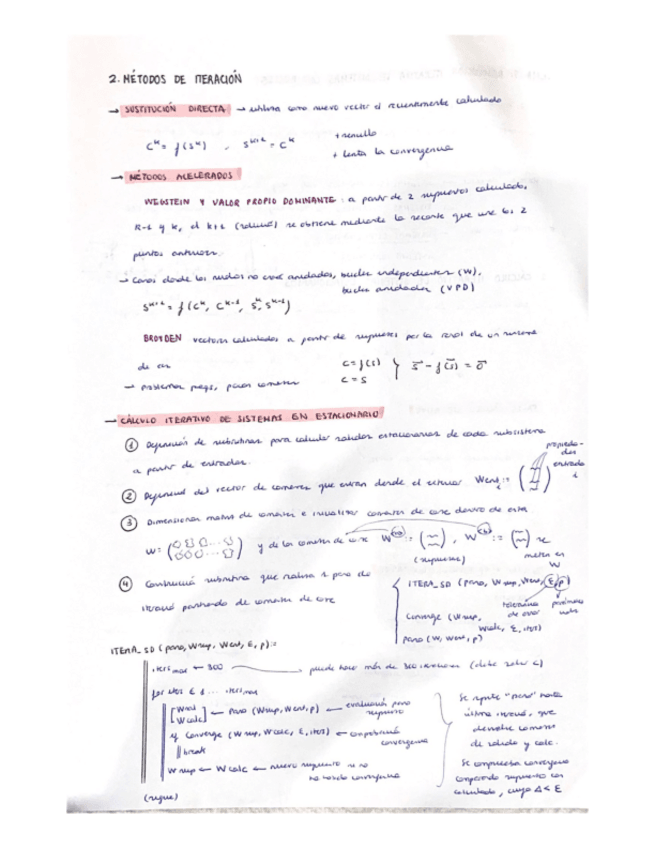 2. MÉTODOS DE ITERACIÓN
→ SUSTITUCIÓN DIRECTA → utiliza como nuevo vector el recientemente calculado
Cᵏ = f(Sᵏ) , Sᵏ⁺¹ = Cᵏ
+ sencillo
+ lenta la convergencia
→ MÉTODOS ACELERADOS
WEGSTEIN Y VALOR PROPIO DOMINANTE: a partir de 2 supuestos calculados,
k-1 y k, el k+1 se obtiene mediante la recta que une los 2
puntos anteriores.
→ Casos donde los no anidados, bucles independientes (W),
bucles anidados (VPD)
Sᵏ⁺¹ = f(Cᵏ, Cᵏ⁻¹, Sᵏ, Sᵏ⁻¹)
BROYDEN vectores calculados a partir de supuestos por la de un sistema
de
C = f(S)
C = S
} S̄ - f(S̄) = 0̄
→ problemas , pocas
→ CÁLCULO ITERATIVO DE SISTEMAS EN ESTACIONARIO
① Definición de subrutinas para calcular salidas estacionarias de cada subsistema
a partir de entradas.
propieda-
des
entrada
② del vector de corrientes que entran desde el exterior Went :=
③ Dimensionar matriz de corrientes e inicializar corrientes de corte dentro de esta
W = y de las corrientes de corte W := , W := se
(supuestas)
meten en
W
④ Construcción subrutina que realiza 1 paso de
partiendo de corrientes de corte
ITERA_SD (paso, Wsup, Went, ε, p)
tolerancia
de error
Converge (Wsup,
Wcalc, ε, iter)
paso (W, Went, p)
ITERA_SD (paso, Wsup, Went, ε, p):=
iters max ← 300
puede hacer más de 300 iteraciones
for iter ∈ 1 ... iters max
← paso (Wsup, Went, p) ← evaluación paso
Wcalc
if Converge (Wsup, Wcalc, ε, iter) ← comprobación
convergencia
break
Wsup ← Wcalc ← nuevo supuesto si no
ha habido convergencia
Se repite "paso" hasta
última , que
devuelve corrientes
de salida y calc.
Se comprueba convergencia
comparando supuesto con
calculado, cuyo Δ < ε
(sigue)